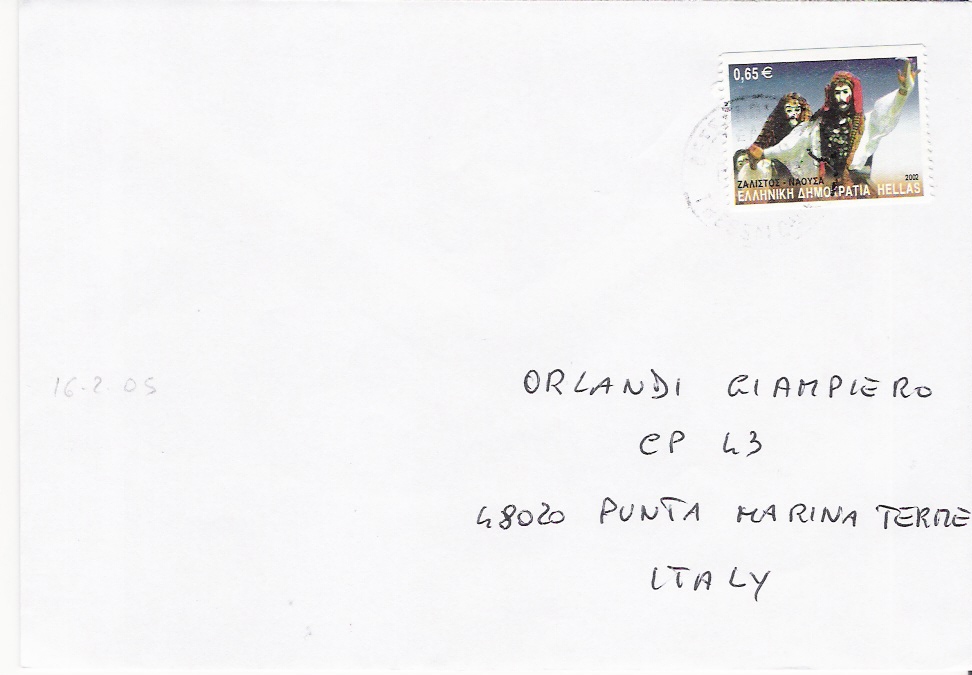 0,65 €
ΖΑΛΙΣΤΟΣ - ΝΑΟΥΣΑ
2002
ΕΛΛΗΝΙΚΗ ΔΗΜΟΚΡΑΤΙΑ HELLAS
16-2-05
ORLANDI GIAMPIERO
CP 43
48020 PUNTA MARINA TERME
ITALY